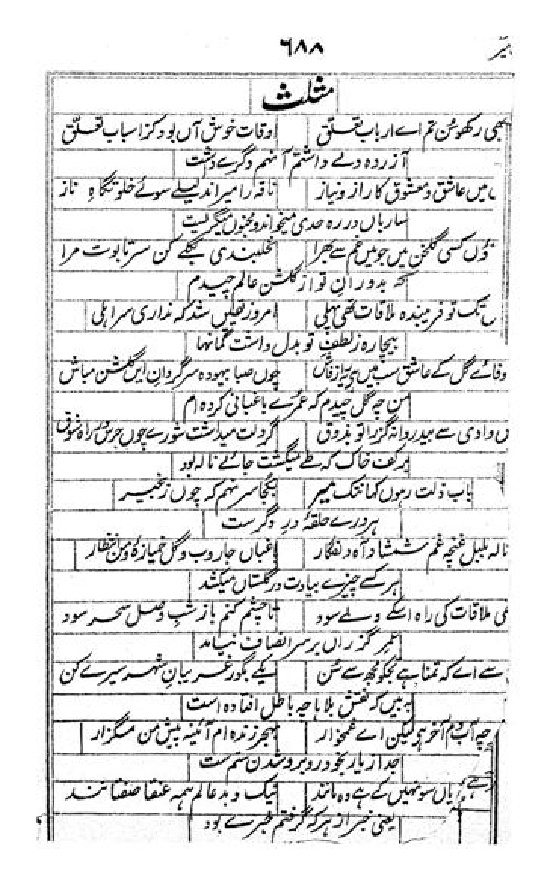 میر
۶۸۸
مثلث
بھی رکھو سُن تم اے ارباب تعلق اوقات خوش آں بود کز اسباب تعلق
آزردہ دلے داشتم آنہم دگرے داشت
میں عاشق و معشوق کا راز و نیاز ناقہ را میراند لیلے سوئے خلوتگاہ ناز
ساربان در رہ حدی میخواند و مجنوں میگریست
کسی گلخن میں جو میں غم سے بھرا نخلبندی کن سر تابوت مرا
کہ بدوران تو از گلشن عالم چیدم
تک تو فریبندہ ملاقات تھی پہلی امروز یقیں شد کہ نداری سر اہلی
بیچارہ ز لطف تو بدل داشت گمانہا
وفائے گل کے عاشق سب میں چوں صبا بیہودہ سرگردان ایں گلشن مباش
من چہ گل چیدم کہ عمرے باغبانی کردہ ام
وادی سے بیدردانہ گزرا تو بذوق گر دلت میداشت شورے چوں جرس در راہ شوق
ہر کف خاک کہ طے میگشت جائے نالہ بود
باب ذلت رہوں کہاں تک میر بکجا سر نہم کہ چوں زنجیر
ہر درے حلقۂ در دگرست
نالہ بلبل غنچہ غم شمشاد آہ دلفگار باغباں جاروب و گل خمیازہ من انتظار
ہر کسے چیزے بیادت در گلستاں میکشد
ملاقات کی راہ اسکے ولے سود تا چشم کنم باز شب وصل سحر سود
عمر گزراں بر سر انصاف نیامد
اے کہ تمنا ہے تجکو مجھ سے سُن یکے بگور غریبان شہر سیرے کن
ببیں کہ نقش بلاہا چہ باطل افتادہ است
آخر لیکن اے غمخوار بہجر زندہ ام آئینہ پیش من مگزار
جدا ز یار بخود روبرو شدن ستم ست
یاں سو نہیں کے ہے وہ مانند نیک و بد عالم ہمہ عنقا صفتانند
یعنی خبر از ہر کہ گرفتم خبرے بود